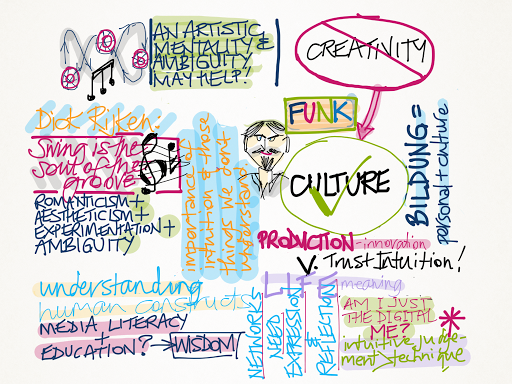 AN ARTISTIC
MENTALITY &
AMBIGUITY
MAY HELP!
CREATIVITY
FUNK
CULTURE
BILDUNG =
personal + culture
Dick Rijken:
Swing is the
soul of the
groove
ROMANTICISM +
AESTHETICISM +
EXPERIMENTATION +
AMBIGUITY
importance of
intuition & those
things we don't
understand
PRODUCTION - innovation
V. Trust Intuition!
understanding
human constructs
MEDIA LITERACY
+
EDUCATION? → WISDOM
NETWORKS
NEED
EXPRESSION
&
REFLECTION
LIFE
meaning
AM I JUST
THE DIGITAL
ME?
intuitive judge-
ment technique